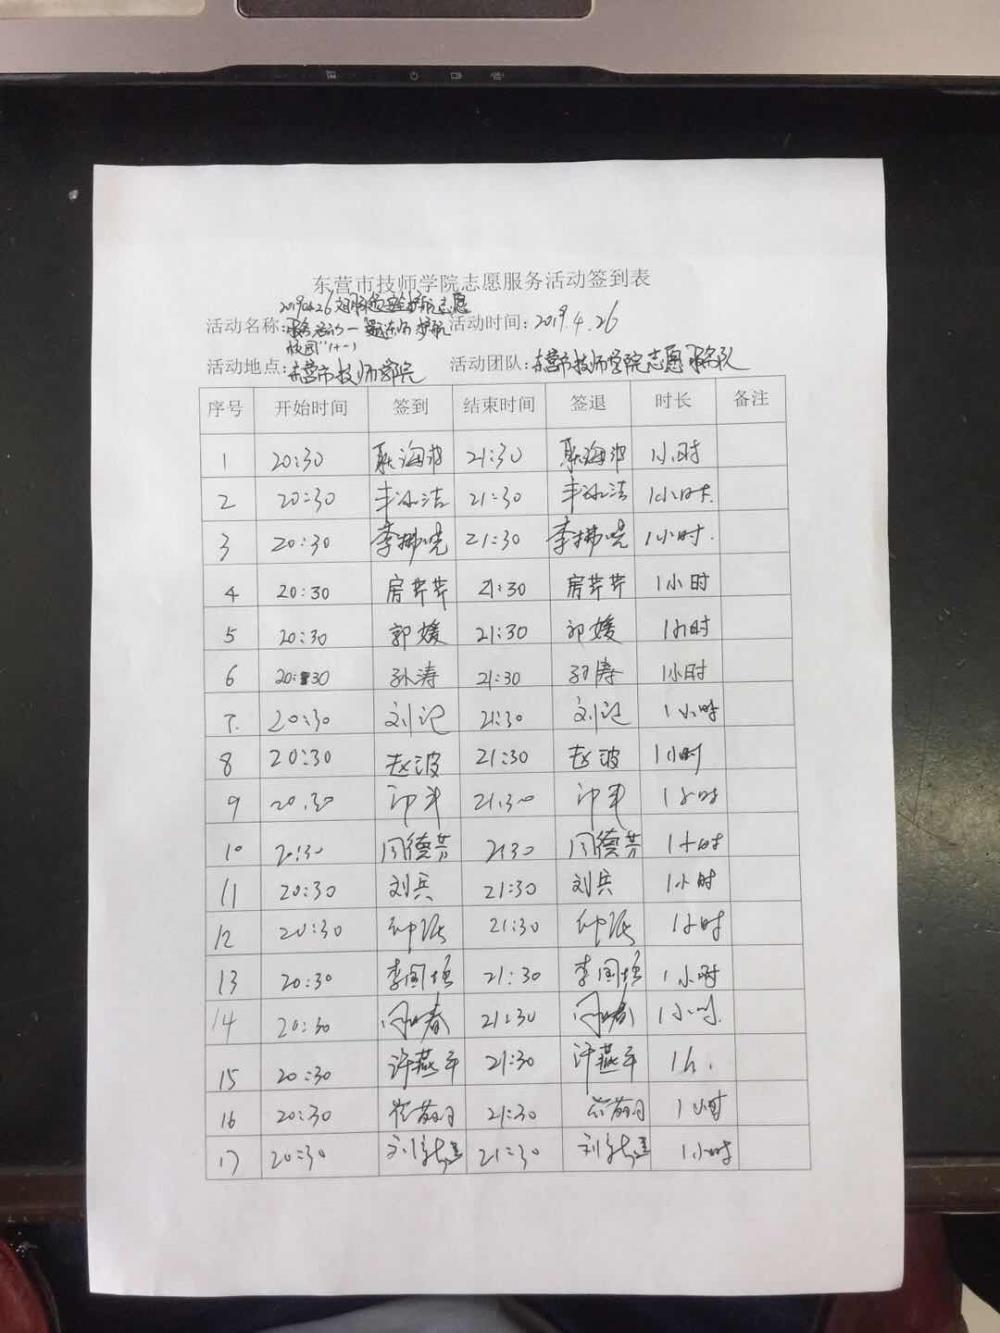 东营市技师学院志愿服务活动签到表
活动名称: 活动时间: 2019.4.26
校园"(十一)
活动地点: 东营市技师学院 活动团队: 东营市技师学院志愿服务队
序号 开始时间 签到 结束时间 签退 时长 备注
1 20:30 21:30 1小时
2 20:30 21:30 1小时.
3 20:30 李拂晓 21:30 李拂晓 1小时.
4 20:30 房芹芹 21:30 房芹芹 1小时
5 20:30 郭媛 21:30 郭媛 1小时
6 20:30 孙涛 21:30 孙涛 1小时
7. 20:30 21:30 1小时
8 20:30 赵波 21:30 赵波 1小时
9 20:30 21:30 1小时
10 20:30 闫德芳 2130 闫德芳 1小时
11 20:30 刘兵 21:30 刘兵 1小时
12 20:30 21:30 1小时
13 20:30 李国培 21:30 李国培 1小时
14 20:30 21:30 1小时.
15 20:30 许燕平 21:30 许燕平 1h.
16 20:30 21:30 1小时
17 20:30 21:30 1小时